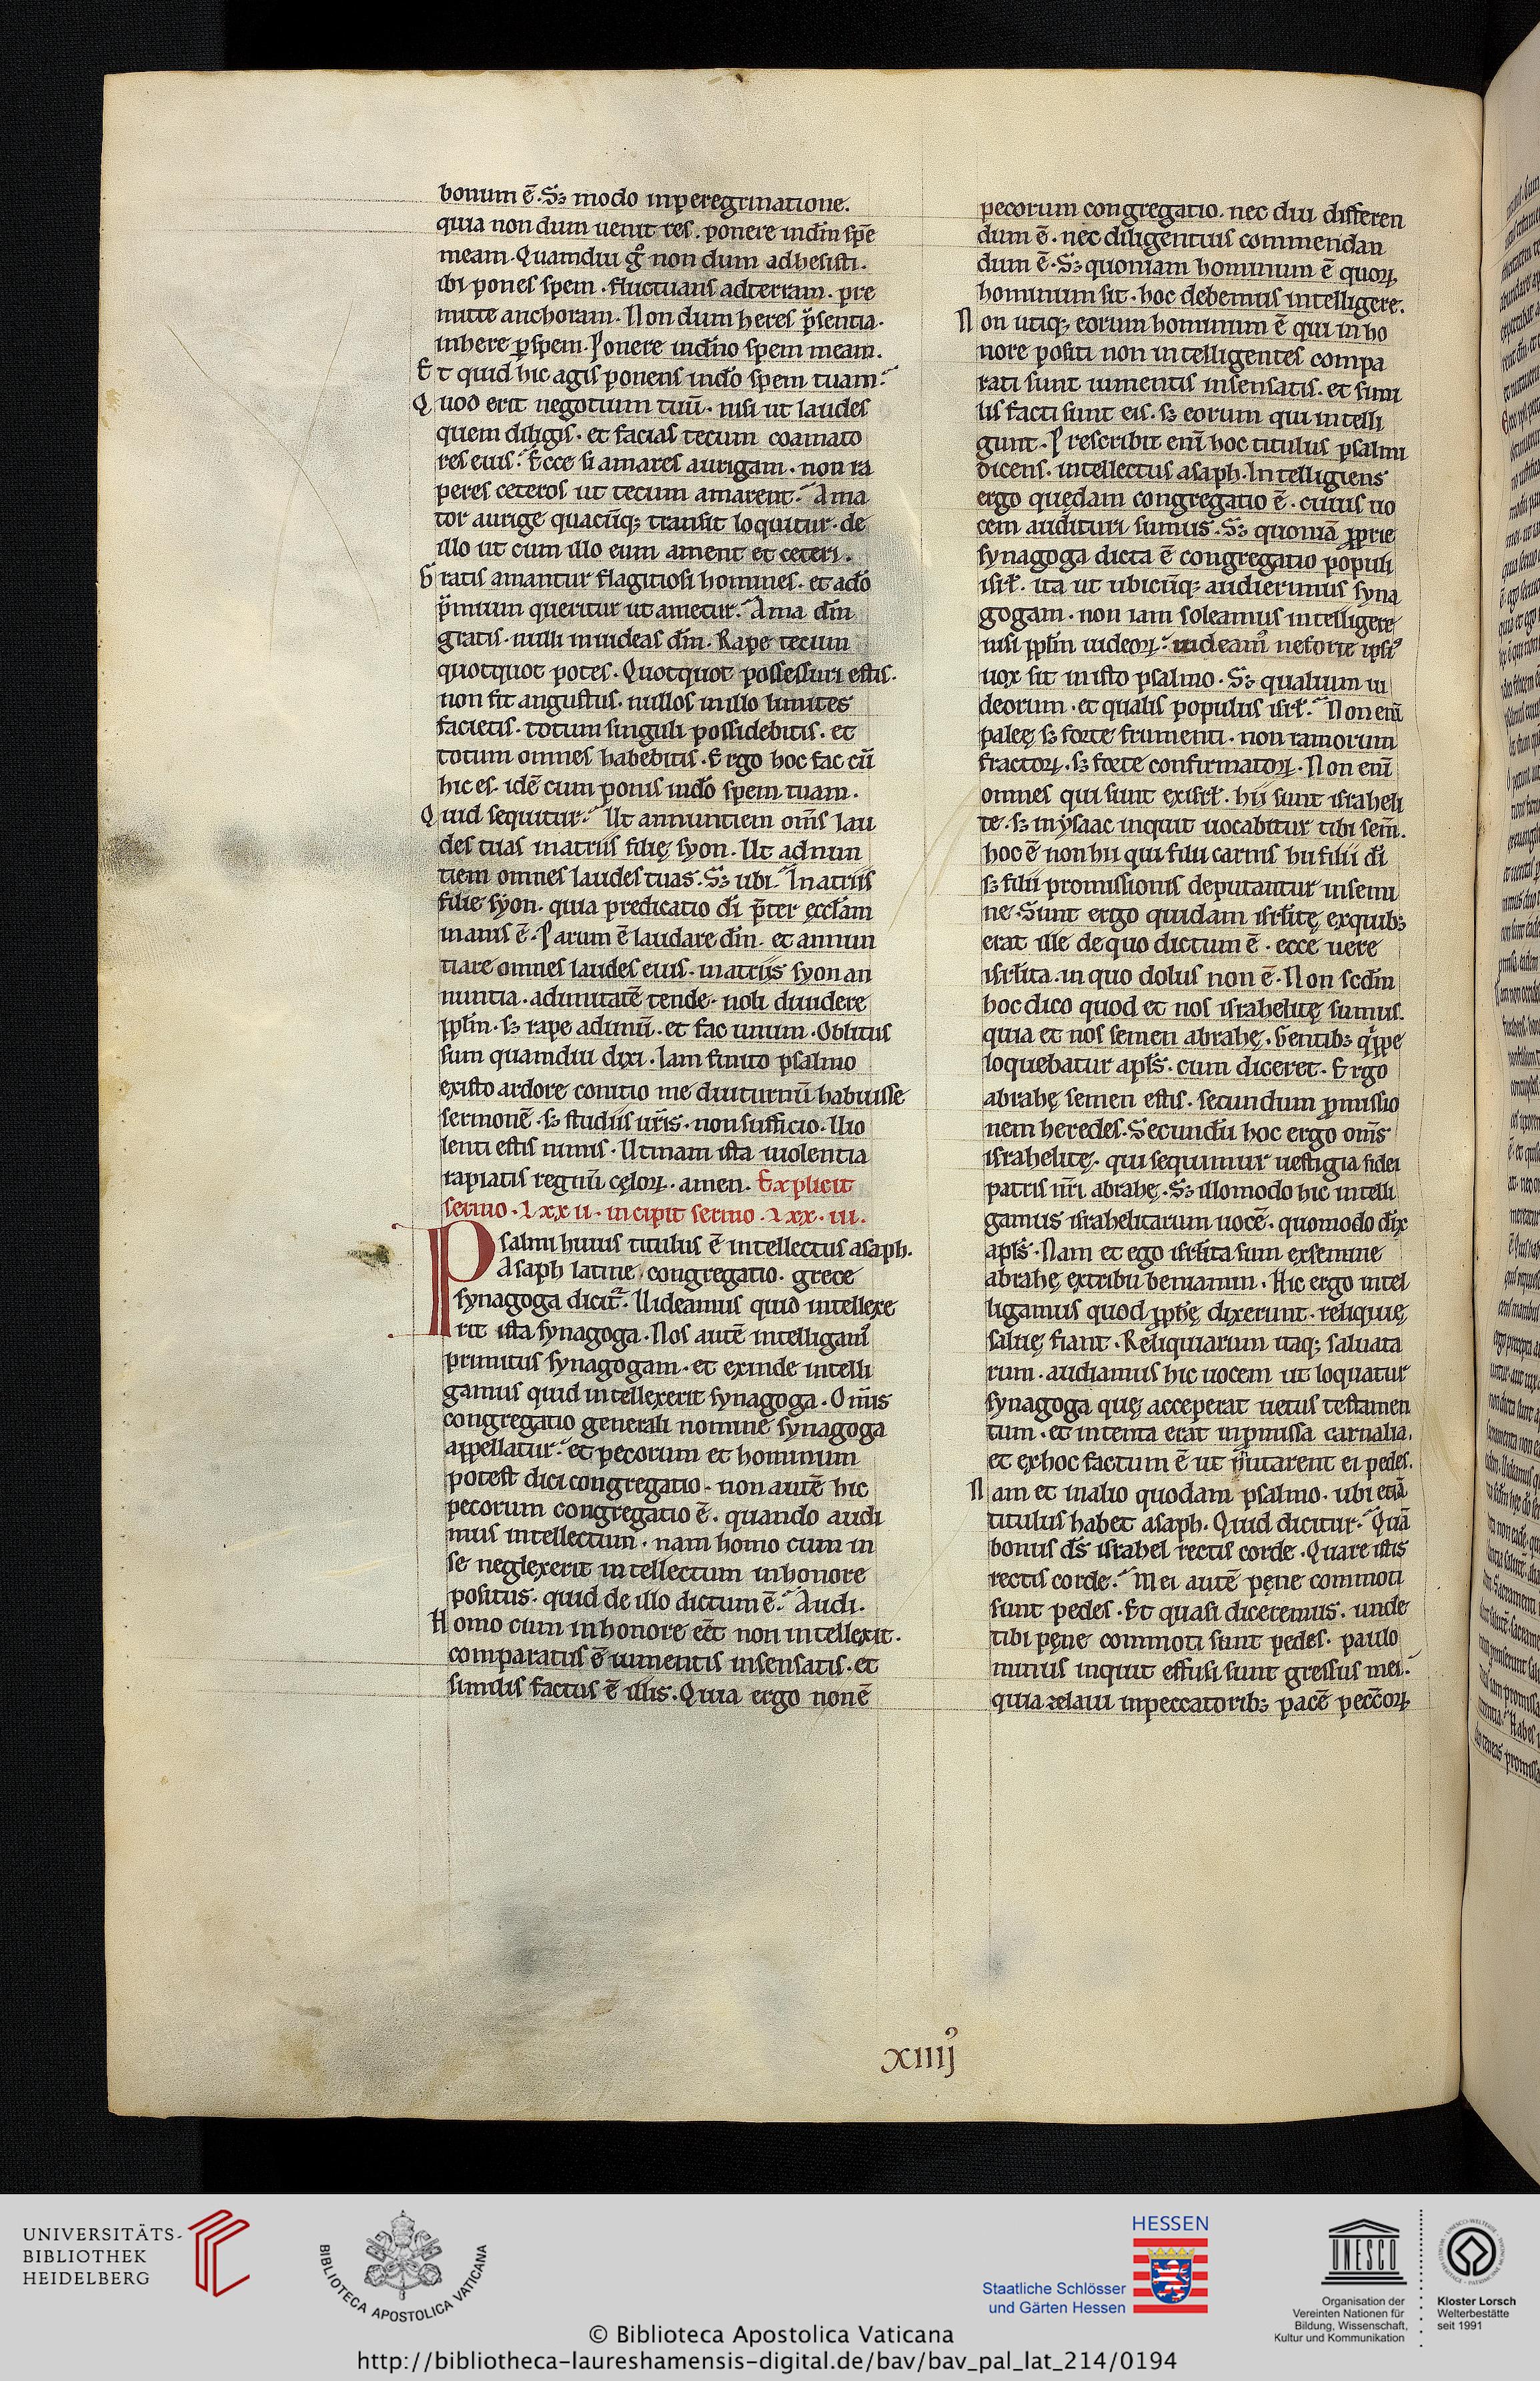 bonum ē. Sꝫ modo inperegrinatione.
quia non dum uenit res. ponere indn̄o spē
meam. Quamdiu gͦ non dum adhesisti.
ibi pones spem. fluctuans adterram. pre
mitte anchoram. Non dum heres p̄sentia.
inhere ꝑspem. Ponere indn̄o spem meam.
Et quid hic agis ponens indō spem tuam?
Quod erit negotium tuū. nisi ut laudes
quem diligis. et facias tecum coamato
res eius? Ecce si amares aurigam. non ra
peres ceteros ut tecum amarent? Ama
tor aurige quacūqꝫ transit loquitur. de
illo ut cum illo eum ament et ceteri.
Gratis amantur flagitiosi homines. et adō
p̄mium queritur ut ametur? Ama dm̄
gratis. nulli inuideas dm̄. Rape tecum
quotquot potes. Quotquot possessuri estis.
non fit angustus. nullos inillo limites
facietis. totum singuli possidebitis. et
totum omnes habebitis. Ergo hoc fac cū
hic es. idē cum ponis indō spem tuam.
Quid sequitur? Ut annuntiem om̄s lau
des tuas inatriis filię syon. Ut adnun
tiem omnes laudes tuas. Sꝫ ubi? Inatriis
filie syon. quia predicatio dī p̄ter ęccl̄am
inanis ē. Parum ē laudare dm̄. et annun
tiare omnes laudes eius. inatriis syon an
nuntia. adunitatē tende. noli diuidere
ppl̄m. sꝫ rape adunū. et fac unum. Oblitus
sum quamdiu dixi. Iam finito psalmo
existo ardore conitio me diuturnū habuisse
sermonē. sꝫ studiis ur̄is. non sufficio. Uio
lenti estis nimis. Utinam ista uiolentia
rapiatis regnū cęloꝝ. amen. Explicit
sermo. lxxii. incipit sermo. lxx.iii.
Psalmi huius titulus ē intellectus asaph.
Asaph latine congregatio. grece
synagoga dicit᷑. Uideamus quid intellexe
rit ista synagoga. Nos autē intelligamꝰ
primitus synagogam. et exinde intelli
gamus quid intellexerit synagoga. Om̄is
congregatio generali nomine synagoga
appellatur. et pecorum et hominum
potest dici congregatio. non autē hic
pecorum congregatio ē. quando audi
mus intellectum. nam homo cum in
se neglexerit intellectum inhonore
positus. quid de illo dictum ē? Audi.
Homo cum inhonore eēt non intellexit.
comparatus ē iumentis insensatis. et
similis factus ē illis. Quia ergo nonē
pecorum congregatio. nec diu differen
dum ē. nec diligentius commendan
dum ē. Sꝫ quoniam hominum ē quoꝝ
hominum sit. hoc debemus intelligere.
Non utiqꝫ eorum hominum ē qui in ho
nore positi non intelligentes compa
rati sunt iumentis insensatis. et simi
lis facti sunt eis. sꝫ eorum qui intelli
gunt. Prescribit enī hoc titulus psalmi
dicens. intellectus asaph. Intelligens
ergo quędam congregatio ē. cuius uo
cem audituri sumus. Sꝫ quoniā ꝓprie
synagoga dicta ē congregatio populi
isrł. ita ut ubicūqꝫ audierimus syna
gogam. non iam soleamus intelligere
nisi ppl̄m iudeoꝝ. uideamꝰ neforte ipsiꝰ
uox sit in isto psalmo. Sꝫ qualium iu
deorum. et qualis populus isrł? Non enī
paleę sꝫ forte frumenti. non ramorum
fractoꝝ. sꝫ forte confirmatoꝝ. Non enī
omnes qui sunt exisrł. hii sunt israheli
te. sꝫ inysaac inquit uocabitur tibi sem̄.
hoc ē non hii qui filii carnis hii filii dī
sꝫ filii promissionis deputantur insemi
ne. Sunt ergo quidam isrłitę exquibꝫ
erat ille de quo dictum ē. ecce uere
isrłita. in quo dolus non ē. Non scdm̄
hoc dico quod et nos israhelitę sumus.
quia et nos semen abrahę. Gentibꝫ qͥppe
loquebatur apl̄s. cum diceret. Ergo
abrahę semen estis. secundum ꝓmissio
nem heredes. Secundū hoc ergo om̄s
israhelitę. qui sequimur uestigia fidei
patris nr̄i abrahę. Sꝫ illomodo hic intelli
gamus israhelitarum uocē. quomodo dix̄
apl̄s. Nam et ego isrłita sum exsemine
abrahę extribu beniamin. Hic ergo intel
ligamus quod ꝓphę dixerunt. reliquię
saluę fiant. Reliquiarum itaqꝫ saluata
rum. audiamus hic uocem ut loquatur
synagoga quę acceperat uetus testamen
tum. et intenta erat inꝓmissa carnalia.
et exhoc factum ē ut nutarent ei pedes.
Nam et inalio quodam psalmo. ubi etiā
titulus habet asaph. Quid dicitur? Quā
bonus ds̄ israhel rectis corde. Quare istis
rectis corde? Mei autē pęne commoti
sunt pedes. Et quasi diceremus. unde
tibi pęne commoti sunt pedes. paulo
minus inquit effusi sunt gressus mei.
quia zelaui inpeccatoribꝫ pacē pecc̄oꝝ
xiiijꝰ
UNIVERSITÄTS-
BIBLIOTHEK
HEIDELBERG
BIBLIOTECA APOSTOLICA VATICANA
HESSEN
Staatliche Schlösser
und Gärten Hessen
UNESCO
Organisation der
Vereinten Nationen für
Bildung, Wissenschaft,
Kultur und Kommunikation
Kloster Lorsch
Welterbestätte
seit 1991
© Biblioteca Apostolica Vaticana
http://bibliotheca-laureshamensis-digital.de/bav/bav_pal_lat_214/0194